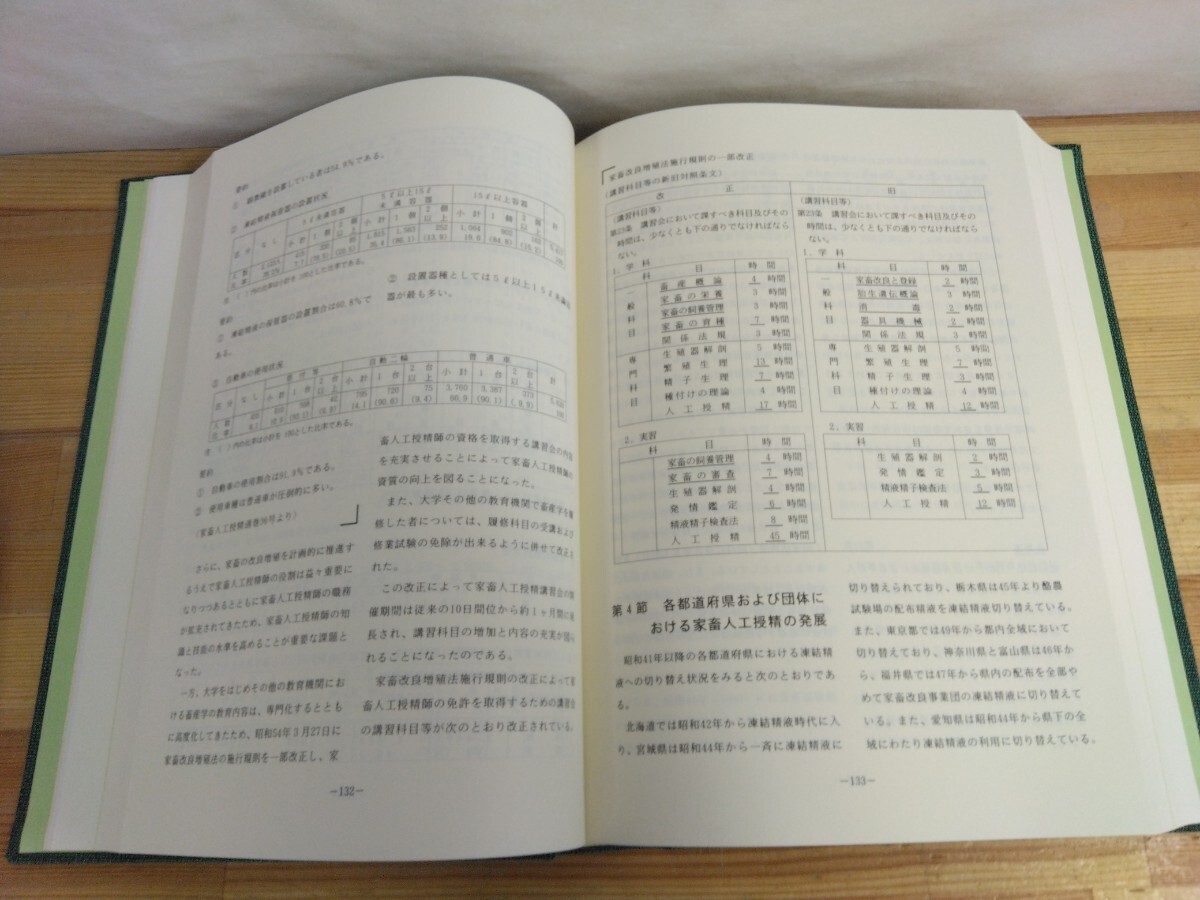 要約
② 凍結精液保管器の設置状況
区分
なし
5ℓ未満容器
5ℓ以上15ℓ未満容器
15ℓ以上容器
計
小計
1個
2個以上
小計
1個
2個以上
小計
1個
2個以上
人数
比率
注( )内の比率は小計を100とした比率である。
要約
② 設置器種としては5ℓ以上15ℓ未満容
器が最も多い。
ある。
③ 自動車の使用状況
区分
なし
自動二輪
普通車
計
小計
1台
2台以上
小計
1台
2台以上
小計
1台
2台以上
人数
720
75
3,760
3,387
373
比率
14.1
(90.6)
(9.4)
66.9
(90.1)
(9.9)
100
注( )内の比率は小計を100とした比率である。
要約
① 自動車の使用割合は91.9%である。
② 使用車種は普通車が圧倒的に多い。
さらに、家畜の改良増殖を計画的に推進す
るうえで家畜人工授精師の役割は益々重要に
なりつつあるとともに家畜人工授精師の職務
が拡充されてきたため、家畜人工授精師の知
識と技能の水準を高めることが重要な課題と
なった。
一方、大学をはじめその他の教育機関にお
ける畜産学の教育内容は、専門化するととも
に高度化してきたため、昭和54年3月27日に
家畜改良増殖法の施行規則を一部改正し、家
畜人工授精師の資格を取得する講習会の内容
を充実させることによって家畜人工授精師の
資質の向上を図ることになった。
また、大学その他の教育機関で畜産学を履
修した者については、履修科目の受講および
修業試験の免除が出来るように併せて改正さ
れた。
この改正によって家畜人工授精講習会の開
催期間は従来の10日間位から約1ヶ月間に延
長され、講習科目の増加と内容の充実が図ら
れることになったのである。
家畜改良増殖法施行規則の改正によって家
畜人工授精師の免許を取得するための講習会
の講習科目等が次のとおり改正されている。
−132−
家畜改良増殖法施行規則の一部改正
(講習科目等の新旧対照条文)
改 正
(講習科目等)
第23条 講習会において課すべき科目及びその
時間は、少なくとも下の通りでなければなら
ない。
1. 学 科
科 目 時 間
一般科目
畜産概論 4時間
家畜の栄養 3時間
家畜の飼養管理 3時間
家畜の育種 7時間
関係法規 3時間
専門科目
生殖器解剖 5時間
繁殖生理 13時間
精子生理 7時間
種付けの理論 4時間
人工授精 17時間
2. 実習
科 目 時 間
家畜の飼養管理 4時間
家畜の審査 7時間
生殖器解剖 4時間
発情鑑定 6時間
精液精子検査法 8時間
人工授精 45時間
旧
(講習科目等)
第23条 講習会において課すべき科目及びその
時間は、少なくとも下の通りでなければなら
ない。
1. 学 科
科 目 時 間
一般科目
家畜改良と登録 2時間
胎生遺伝概論 3時間
消毒 2時間
器具機械 2時間
関係法規 3時間
専門科目
生殖器解剖 5時間
繁殖生理 7時間
精子生理 3時間
種付けの理論 4時間
人工授精 12時間
2. 実習
科 目 時 間
生殖器解剖 2時間
発情鑑定 3時間
精液精子検査法 5時間
人工授精 12時間
第4節 各都道府県および団体に
おける家畜人工授精の発展
昭和41年以降の各都道府県における凍結精
液への切り替え状況をみると次のとおりであ
る。
北海道では昭和42年から凍結精液時代に入
り、宮城県は昭和44年から一斉に凍結精液に
切り替えられており、栃木県は45年より酪農
試験場の配布精液を凍結精液切り替えている。
また、東京都では49年から都内全域において
切り替えており、神奈川県と富山県は46年か
ら、福井県では47年から県内の配布を全部や
めて家畜改良事業団の凍結精液に切り替えて
いる。また、愛知県は昭和44年から県下の全
域にわたり凍結精液の利用に切り替えている。
−133−